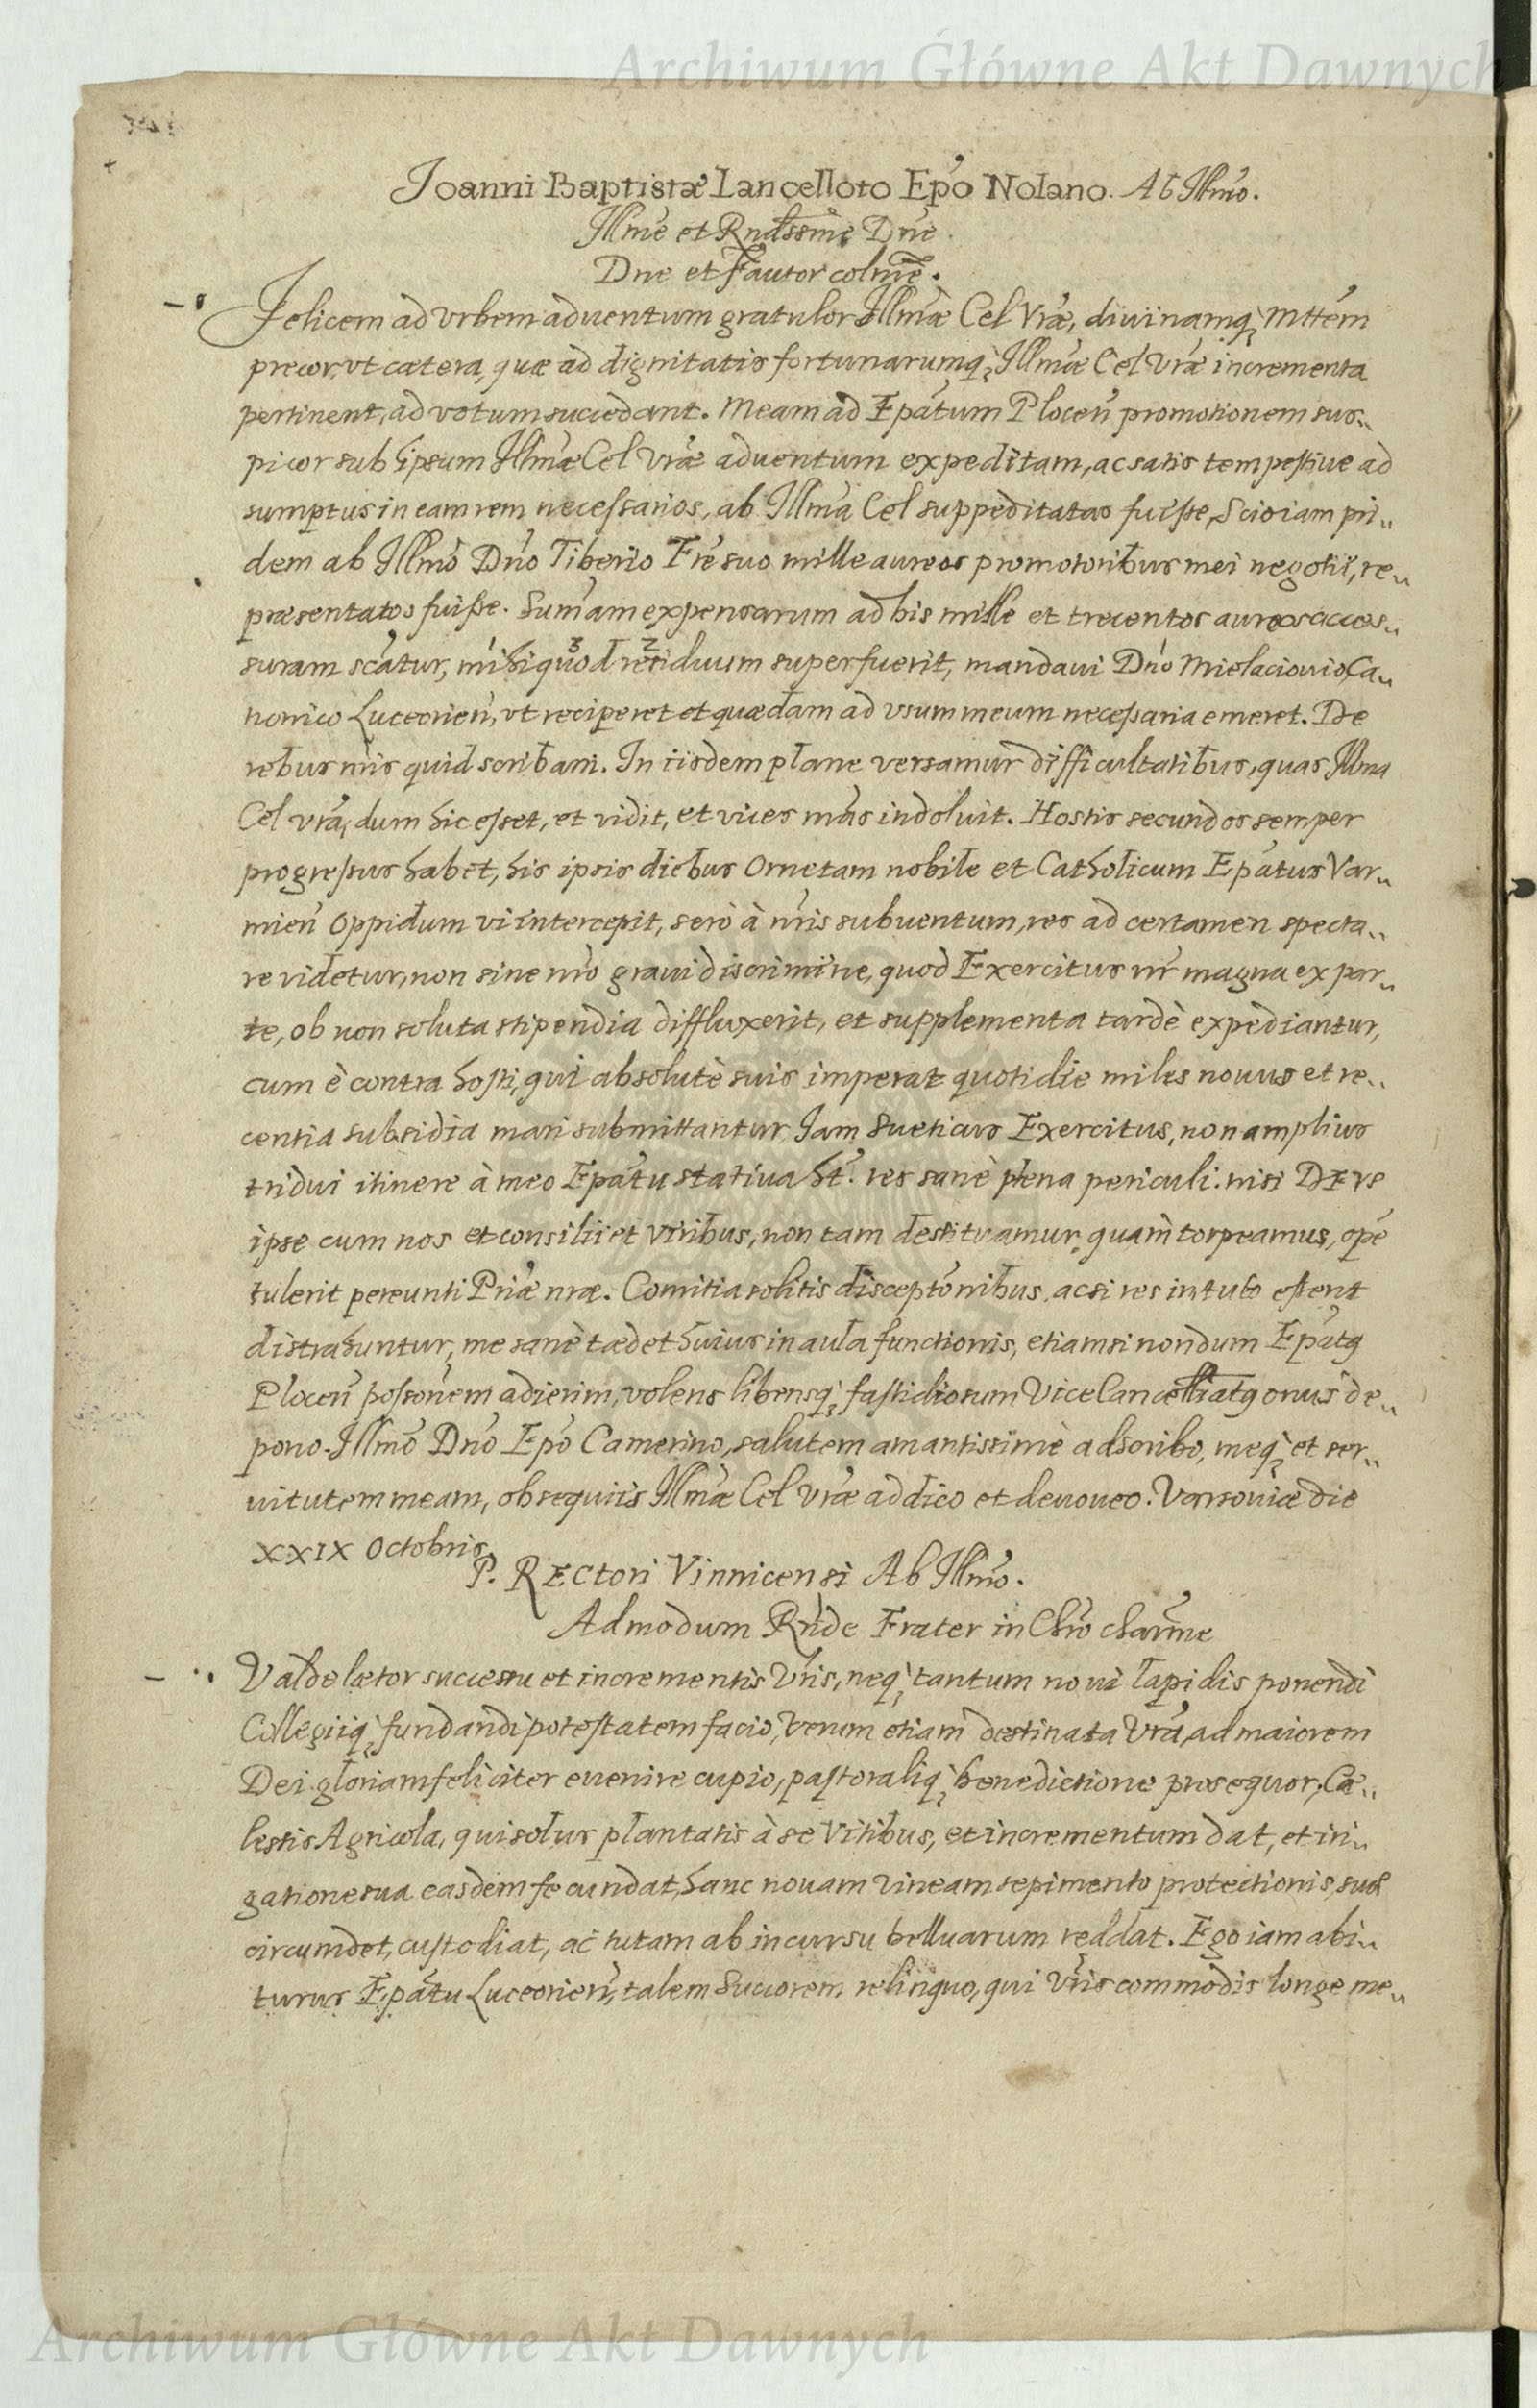 Archiwum Główne Akt Dawnych
Joanni Baptistæ Lancelloto Epo Nolano. Ab Illmo.
Illme et Rndssme Dne.
Dne et Fautor colme.
Felicem ad vrbem aduentum gratulor Illmæ Cel Vræ, diuinamq; Mttem
precor, vt cætera, quæ ad dignitatis fortunarumq; Illmæ Cel Vræ incrementa
pertinent, ad votum succedant. Meam ad Epatum Plocen promotionem sus„
picor sub ipsum Illmæ Cel Vræ aduentum expeditam, ac satis tempestiue ad
sumptus in eam rem necessarios, ab Illma Cel suppeditatas fuisse, Scio iam pri„
dem ab Illmo Dno Tiberio Fre suo mille aureos promotoribus mei negotii, re„
præsentatos fuisse. Sumam expensarum ad bis mille et trecentos aureos acces„
suram scatur, mihi quod residuum superfuerit, mandaui Dno Mielaciouio Ca„
nonico Luceorien, vt reciperet et quædam ad vsum meum necessaria emeret. De
rebus nris quid scribam. In iisdem plane versamur difficultatibus, quas Illma
Cel vra, dum hic esset, et vidit, et vices nras indoluit. Hostis secundos semper
progressus habet, his ipsis diebus Ornetam nobile et Catholicum Epatus Var„
mien Oppidum vi intercepit, serò à nris subuentum, res ad certamen specta„
re videtur, non sine nro graui discrimine, quod Exercitus nr magna ex par„
te, ob non soluta stipendia diffluxerit, et supplementa tardè expediantur,
cum è contra hosti, qui absolutè suis imperat quotidie miles nouus et re„
centia subsidia mari submittantur Jam Sueticus Exercitus, non amplius
tridui itinere à meo Epatu statiua ht. res sanè plena periculi. nisi DEVS
ipse cum nos et consilii et viribus, non tam destituamur quam torpeamus, opē
tulerit pereunti Priæ nræ. Comitia solitis disceptonibus, acsi res in tuto essent
distrahuntur, me sanè tædet huius in aula functionis, etiamsi nondum Epatg
Plocen possonem adierim, volens libensq; fastidiosum Vicecancellriatg onus de„
pono. Illmo Dno Epo Camerino, salutem amantissimè adscribo, meq; et ser„
uitutem meam, obsequiis Illmæ Cel Vræ addico et deuoueo. Varsouiæ die
XXIX Octobris.
P. RECtori Vinnicensi Ab Illmo.
Admodum Rnde Frater in Chro charme
Valde lætor successu et incrementis Vris, neq; tantum noui lapidis ponendi
Collegiiq; fundandi potestatem facio, verum etiam destinata Vra, ad maiorem
Dei gloriam feliciter euenire cupio, pastoraliq; benedictione prosequor, Cæ„
lestis Agricola, qui solus plantatis à se Vitibus, et incrementum dat, et irri„
gatione sua easdem fecundat, hanc nouam vineam sepimento protectionis suæ
circumdet, custodiat, ac tutam ab incursu belluarum reddat. Ego iam abi„
turus Epatu Luceorien, talem Succorem relinquo, qui Vris commodis longe me„
Archiwum Główne Akt Dawnych